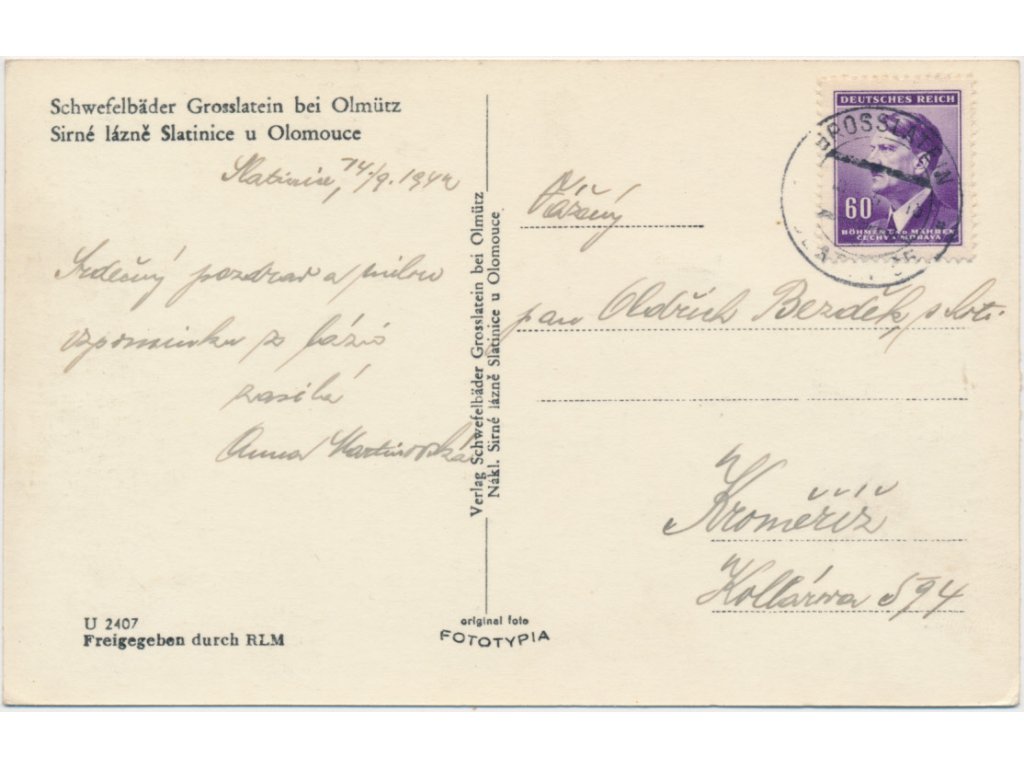 Schwefelbäder Grosslatein bei Olmütz
Sirné lázně Slatinice u Olomouce
Slatinice, 14./9. 1942
Srdečný pozdrav a milou
vzpomínku z lázní
zasílá
Anna Martinovská
U 2407
Freigegeben durch RLM
Verlag Schwefelbäder Grosslatein bei Olmütz
Nákl. Sirné lázně Slatinice u Olomouce
original foto
FOTOTYPIA
DEUTSCHES REICH
60
BÖHMEN UND MÄHREN
ČECHY A MORAVA
GROSSLATEIN
Vážený
pan Oldřich Bezděk, s
Kroměříž
Kollárova 594